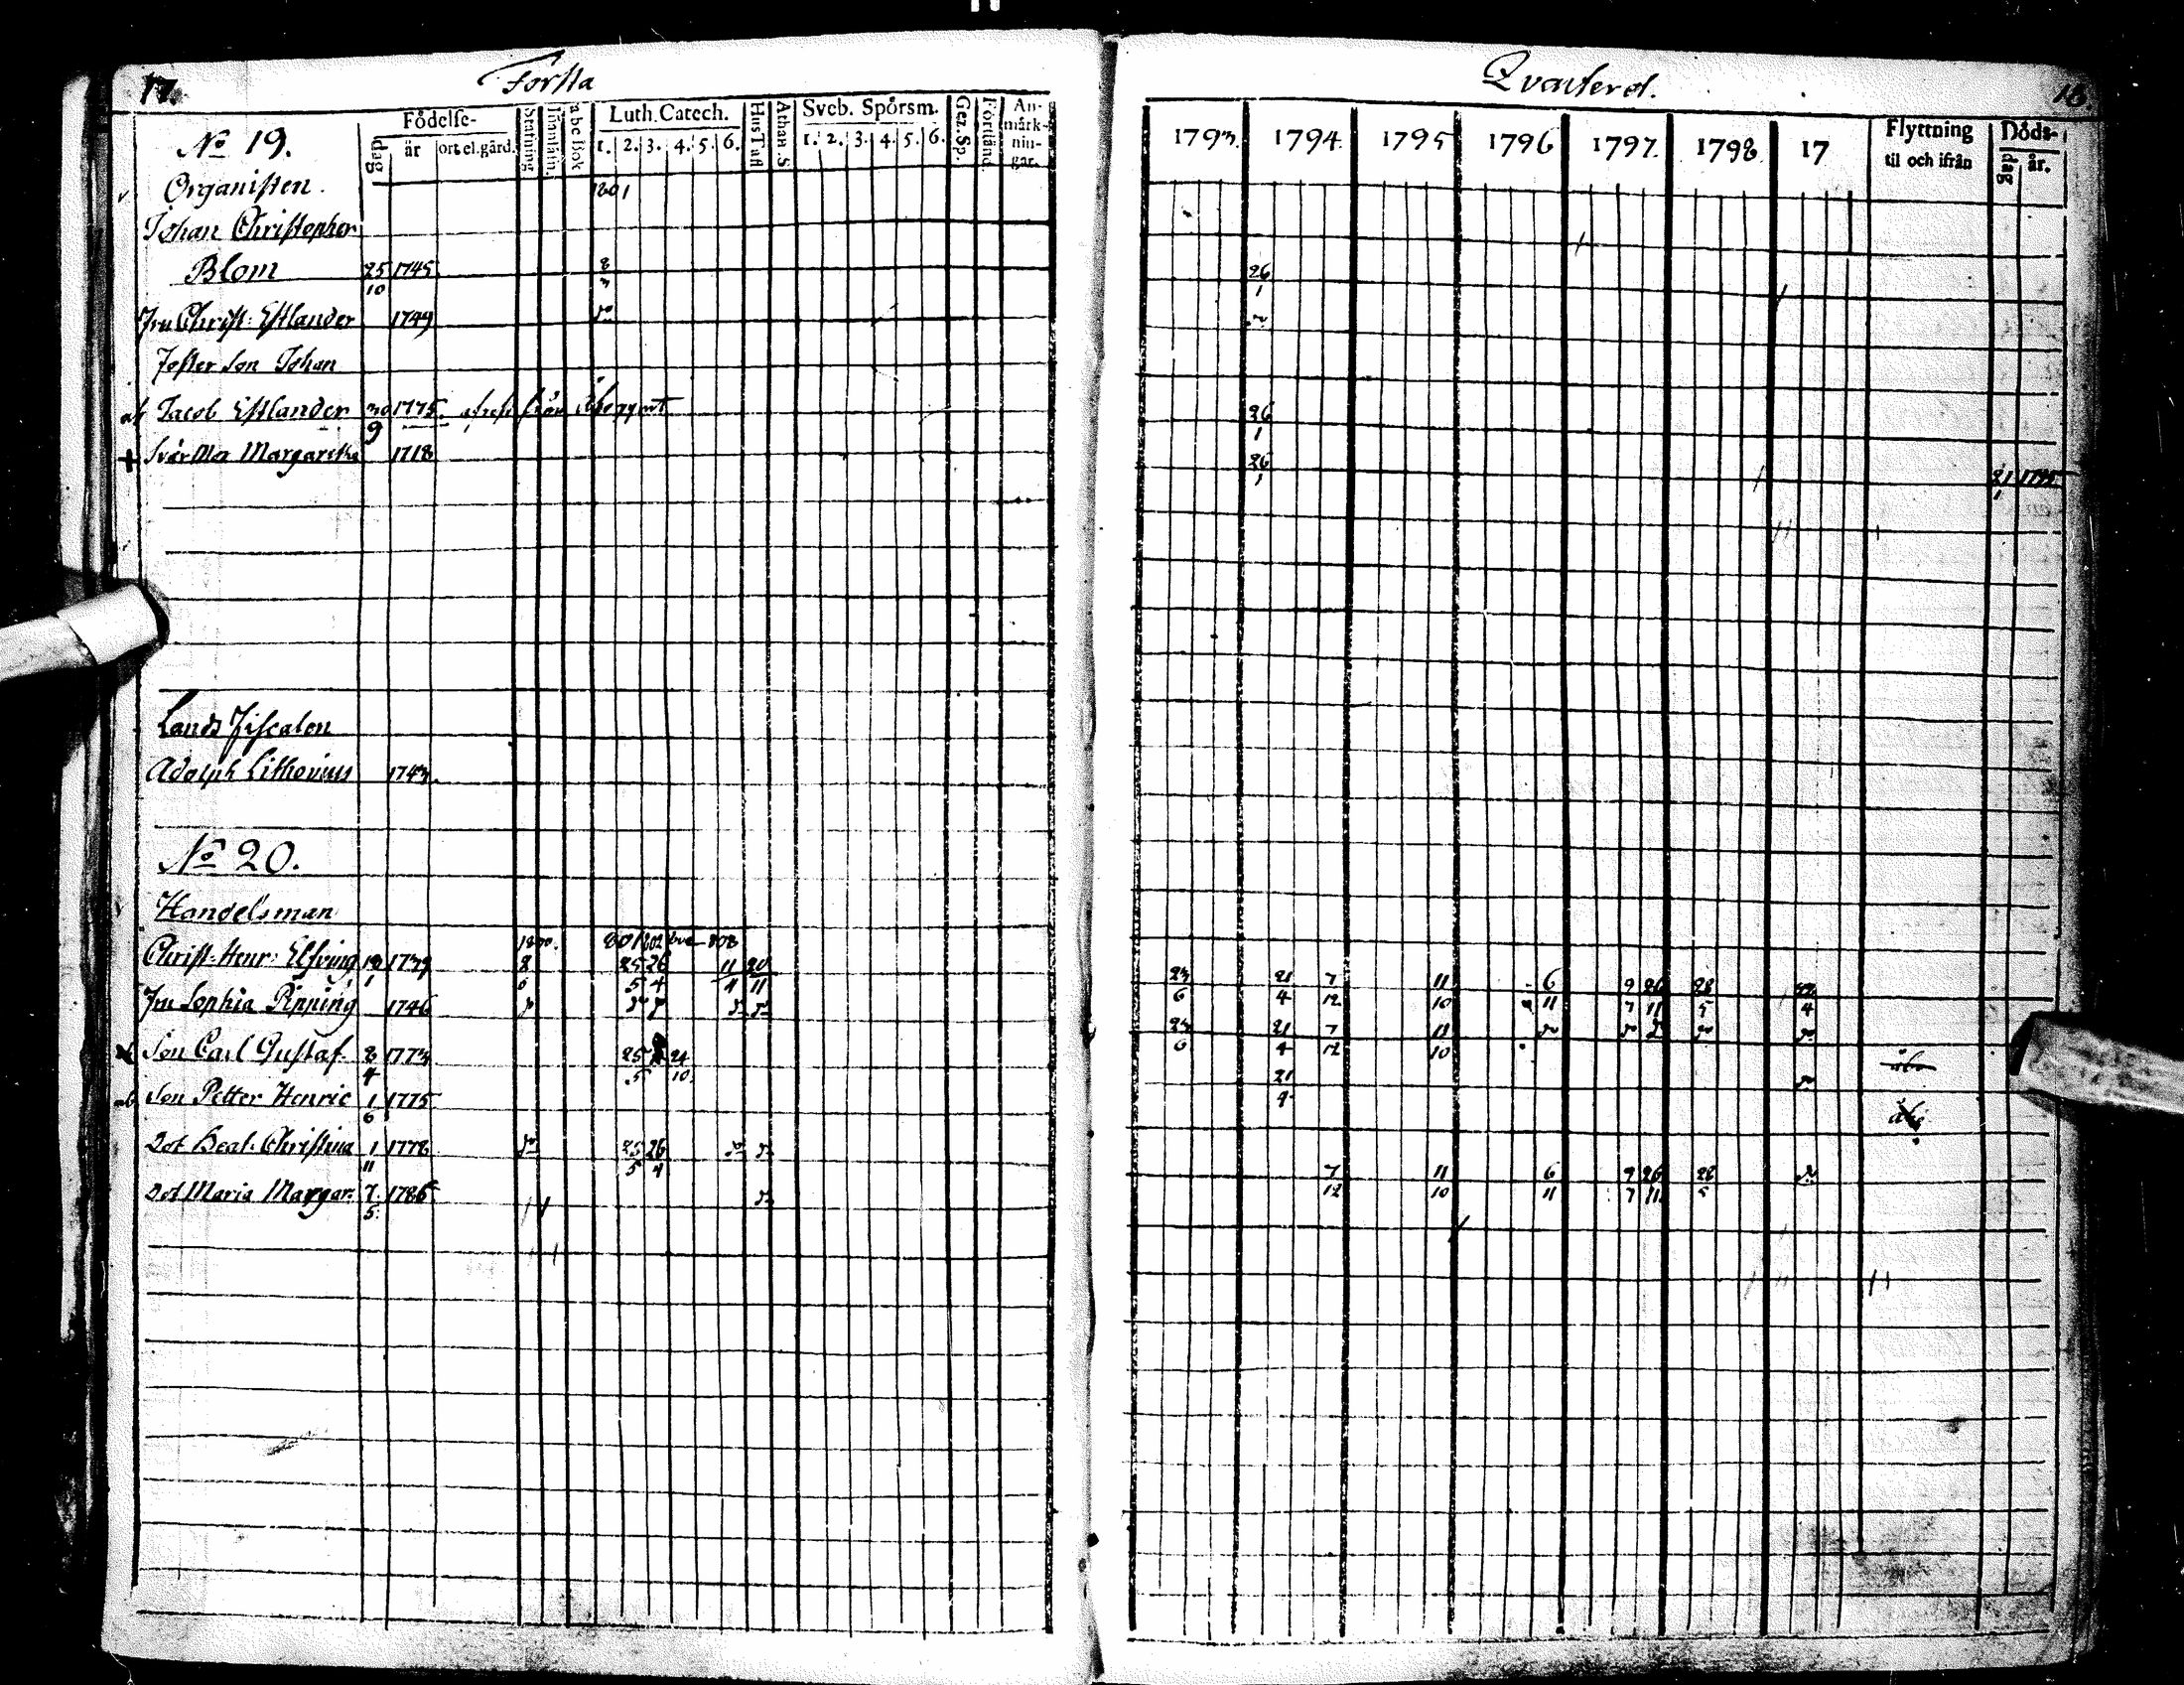 17. Första
Qvarteret. 18.
Födelse- Luth. Catech. Sveb. Spörsm. An-märk-nin-gar.
dag år ort el. gård. Stafning Innanläsn. abc bok 1. 2. 3. 4. 5. 6. Hus Taf Athan. S. 1. 2. 3. 4. 5. 6. Gez. Sp. Förstånd.
1793. 1794. 1795 1796 1797. 1798 17 Flyttning til och ifrån Döds- dag år.
No 19.
Organisten. 1801
Johan Christopher
Blom 25/10 1745 8/3 26/1
Fru Christ: Estlander 1749
Foster Son Johan
Jacob Estlander 30/9 1775. 26/1
Svär Mor Margaretha 1718 26/1 21/1 1795
Lands Fiscalen
Adolph Lithovius 1743.
No 20.
Handelsman
1800. 801 802 808
Christ: Henr: Elfving 1739 25/5 26/4 11/4 20/11 23/6 21/4 7/12 11/10 6/11 9/7 26/11 28/5
Fru Sophia Pipping 1746 23/6 21/4 7/12 11/10
Son Carl Gustaf 8/4 1773 25/5 24/10 21/4 åbo
Son Petter Henric 1/6 1775 åbo
Dot Beat. Christina 1/11 1778 25/5 26/4 7/12 11/10 6/11 9/7 26/11 28/5
Dot Maria Margar: 7/5 1786